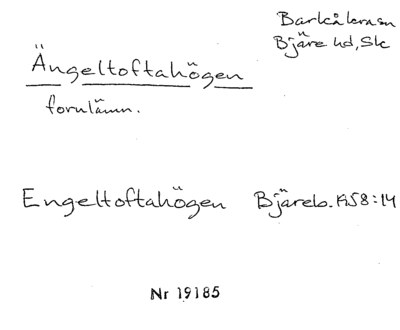 Barkåkra sn
Bjäre hd, Sk
Ängeltoftahögen
fornlämn.
Engeltoftahögen Bjäreb. 1958:14
Nr 19185